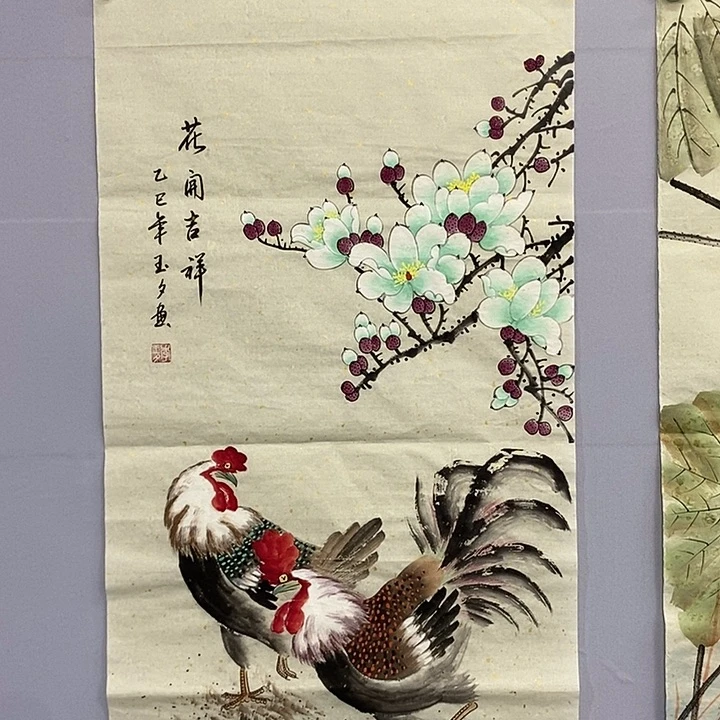 花開吉祥
乙巳年玉夕画